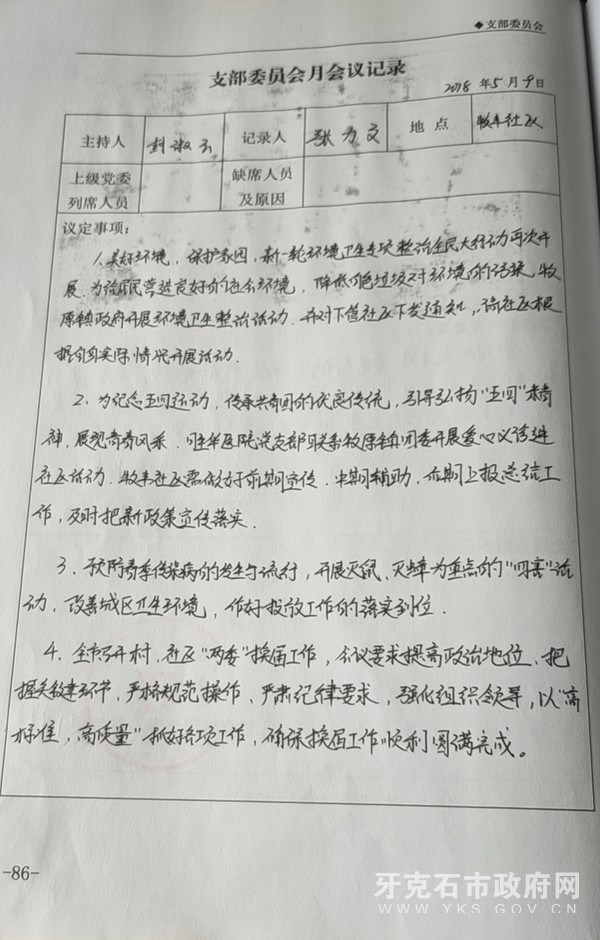 ◆支部委员会
支部委员会月会议记录
2018 年 5 月 9 日
主持人 封淑玉 记录人 张力文 地点 牧丰社区
上级党委 缺席人员
列席人员 及原因
议定事项：
1、美好环境，保护家园，新一轮环境卫生专项整治全民大行动再次开
展。为给居民营造良好的社会环境，降低白色垃圾对环境的污染，牧
原镇政府开展环境卫生整治活动。并对下管社区下发通知，请社区根
据自身实际情况开展活动.
2、为纪念五四运动，传承共青团的优良传统，引导弘扬"五四"精
神，展现青春风采.旺华医院党支部联系牧原镇团委开展爱心义诊进
社区活动.牧丰社区需做好前期宣传.中期辅助，后期上报总结工
作，及时把新政策宣传落实.
3、预防春季传染病的发生与流行，开展灭鼠、灭蟑为重点的"四害"活
动，改善城区卫生环境，作好投放工作的落实到位.
4、全市召开村、社区"两委"换届工作，会议要求提高政治地位、把
握关键环节，严格规范操作、严肃纪律要求，强化组织领导，以"高
标准，高质量"抓好各项工作，确保换届工作顺利圆满完成。
-86-
牙克石市政府网
WWW.YKS.GOV.CN